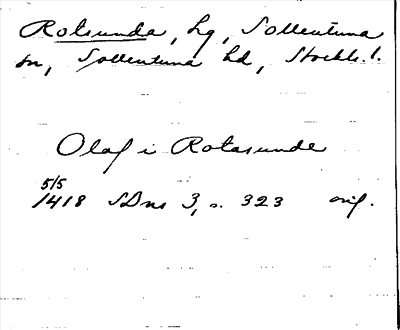 Rotsunda, Lg, Sollentuna
sn, Sollentuna hd, Stockh. l.
Olaf i Rotasunde
5/5
1418 SDns 3, s. 323 orig.